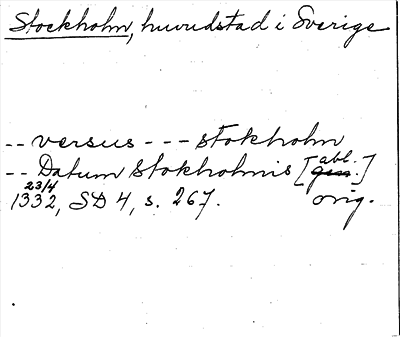 Stockholm, huvudstad i Sverige
-- versus --- stokholm
-- Datum stokholmis [abl.]
23/4 1332, SD 4, s. 267. orig.